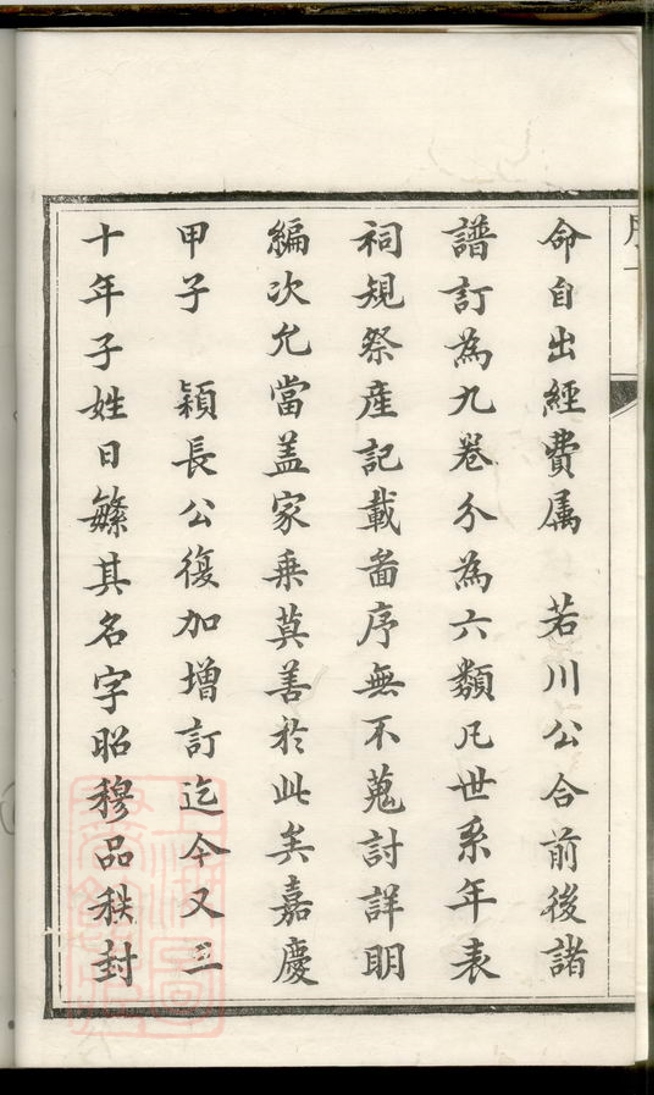 序
命自出經費属　若川公合前後諸
譜訂為九卷分為六類凡世系年表
祠規祭産記載啚序無不蒐討詳明
編次允當盖家乗莫善於此矣嘉慶
甲子　穎長公復加增訂迄今又三
十年子姓日繁其名字昭穆品秩封